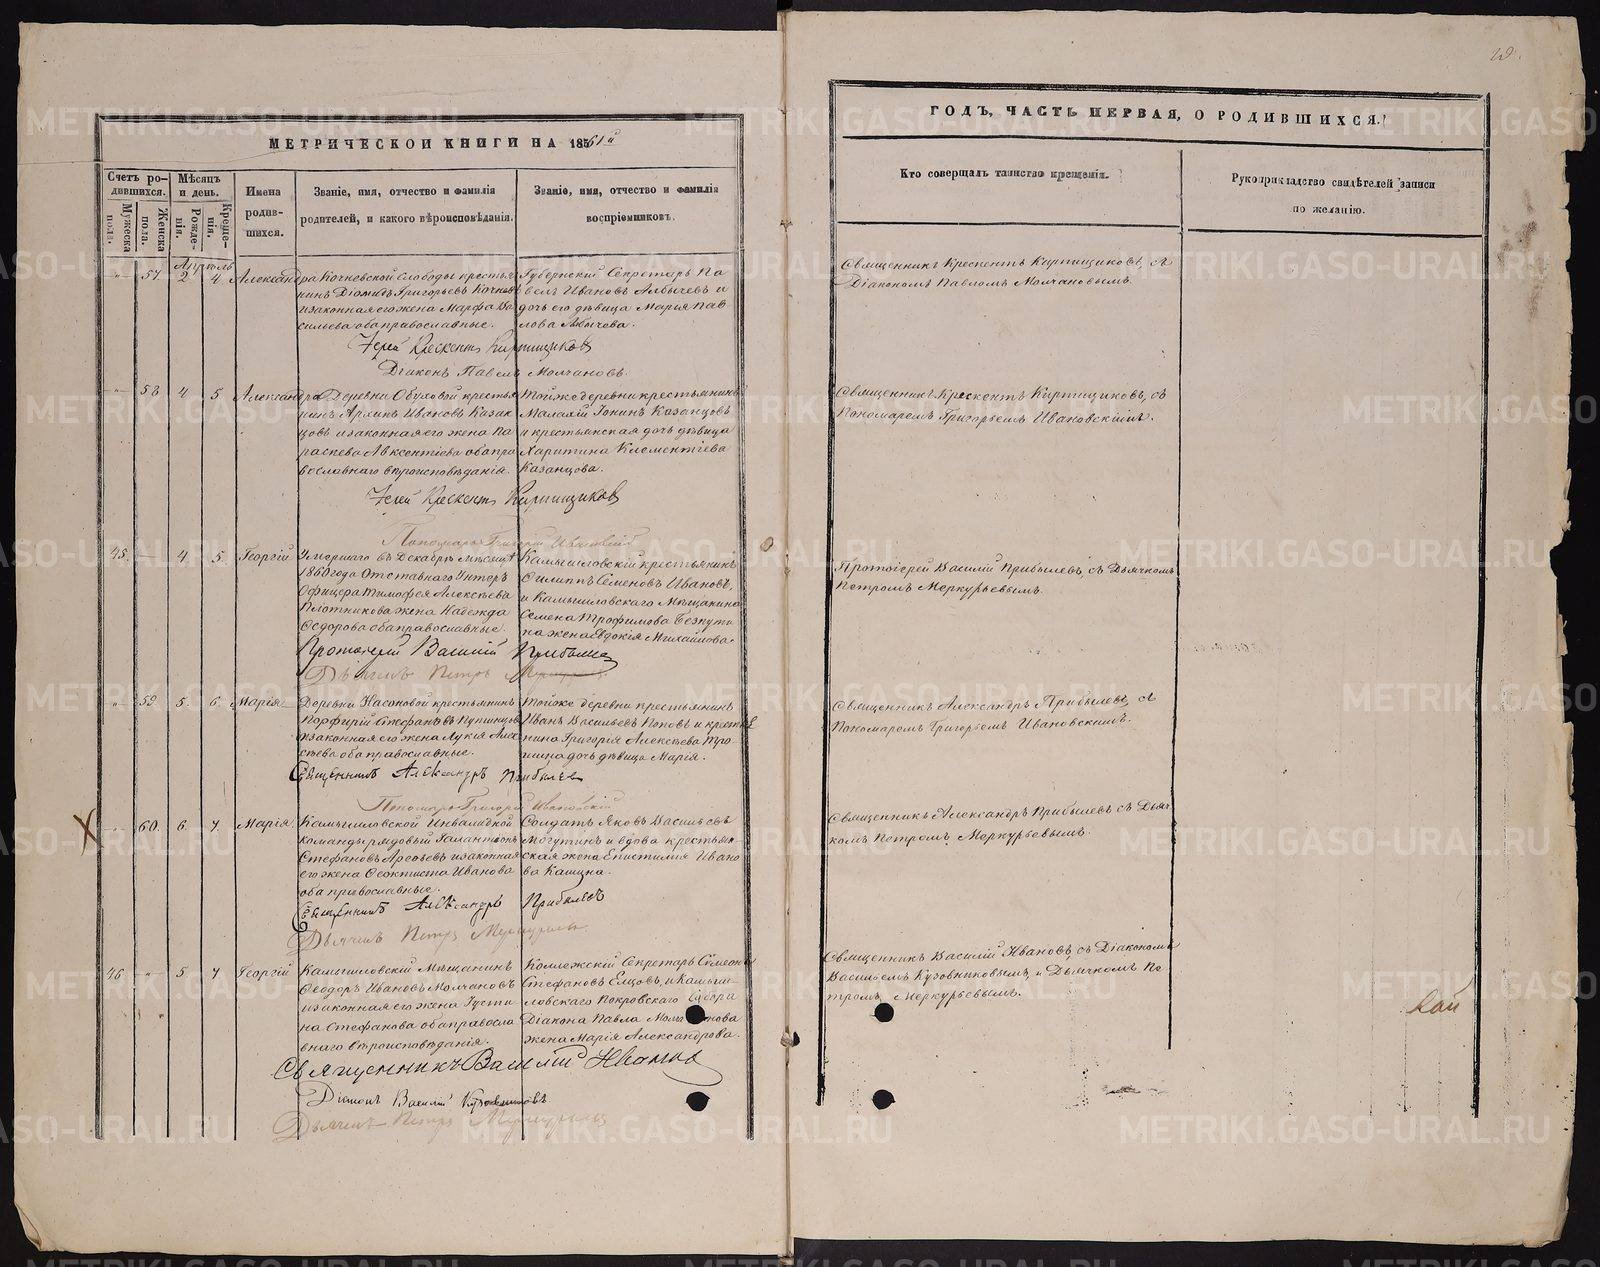 МЕТРИЧЕСКОЙ КНИГИ НА 1861й
Счетъ родившихся.
Мужеска пола.
Женска пола.
Мѣсяцъ и день.
Рожденія.
Крещенія.
Имена родившихся.
Званіе, имя, отчество и фамилія
родителей, и какого вѣроисповѣданія.
Званіе, имя, отчество и фамилія
воспріемниковъ.
Апрѣль
57 2 4 Александра
Кочневской Слободы крестья
нинъ Діомидъ Григорьевъ Кочневъ
и законная его жена Марфа Ва
сильева оба православные.
Губернскій Секретарь Па
велъ Ивановъ Албычевъ и
дочь его дѣвица Марія Пав
лова Албычева.
Іерей Крескентъ Кирпищиковъ
Діаконъ Павелъ Молчановъ.
58 4 5 Александра
Деревни Обуховой крестья
нинъ Ивановъ Казан
цовъ и законная его жена Па
раскева Авксентіева оба пра
вославнаго вѣроисповѣданія.
Той же деревни крестьянинъ
Малахій Іонинъ Казанцовъ
и крестьянская дочь дѣвица
Харитина Клементіева
Казанцова.
Іерей Крескентъ Кирпищиковъ
Пономарь Григорій Ивановскій
45. 4 5. Георгій
Умершаго въ Декабрѣ мѣсяцѣ
1860 года Отставнаго Унтеръ
Офицера Тимофея Алексѣева
Плотникова жена Надежда
Ѳедорова оба православные.
Камышловскій крестьянинъ
Филиппъ Семеновъ Ивановъ,
и Камышловскаго Мѣщанина
Семена Трофимова Безпути
на жена Евдокія Михайлова.
Протоіерей Василій Прибылевъ
Дьячекъ Петръ
59. 5. 6. Марія
Деревни Насоновой крестьянинъ
Порфирій Стефановъ Пупышцовъ
и законная его жена Лукія Алек
сѣева оба православные.
Той же деревни крестьянинъ
Иванъ Васильевъ Поповъ и крестья
нина Григорія Алексѣева
дочь дѣвица Марія.
Священникъ Александръ Прибылев
Пономарь Григорій Ивановскій
Х 60. 6. 7. Марія
Камышловской Инвалидной
команды рядовый Галактіонъ
Стефановъ Арефьевъ и законная
его жена Ѳеоктиста Иванова
оба православные.
Солдатъ Яковъ Васильевъ
Могутинъ и вдова крестьян
ская жена Епистимія Ивано
ва Кашина.
Священникъ Александръ Прибылевъ
Дьячекъ Петръ Меркурьевъ.
46 5 7 Георгій
Камышловскій Мѣщанинъ
Ѳеодоръ Ивановъ Молчановъ
и законная его жена Іусти
на Стефанова оба правосла
внаго вѣроисповѣданія.
Коллежскій Секретарь Симеонъ
Стефановъ Елцовъ, и Камыш
ловскаго Покровскаго Собора
Діакона Павла Молчанова
жена Марія Александрова.
Священникъ Василій Ивановъ
Діаконъ Василій Кузовниковъ.
Дьячекъ Петръ Меркурьевъ
ГОДЪ, ЧАСТЬ ПЕРВАЯ, О РОДИВШИХСЯ.
Кто совершалъ таинство крещенія.
Рукоприкладство свидѣтелей записи
по желанію.
Священникъ Крескентъ Кирпищиковъ, съ
Діакономъ Павломъ Молчановымъ.
Священникъ Крескентъ Кирпищиковъ, съ
Пономаремъ Григорьемъ Ивановскимъ.
Протоіерей Василій Прибылевъ, съ Дьячкомъ
Петромъ Меркурьевымъ.
Священникъ Александръ Прибылевъ, съ
Пономаремъ Григорьемъ Ивановскимъ.
Священникъ Александръ Прибылевъ съ Дьяч
комъ Петромъ Меркурьевымъ.
Священникъ Василій Ивановъ, съ Діакономъ
Васильемъ Кузовниковымъ, и Дьячкомъ Пе
тромъ Меркурьевымъ.
METRIKI.GASO-URAL.RU